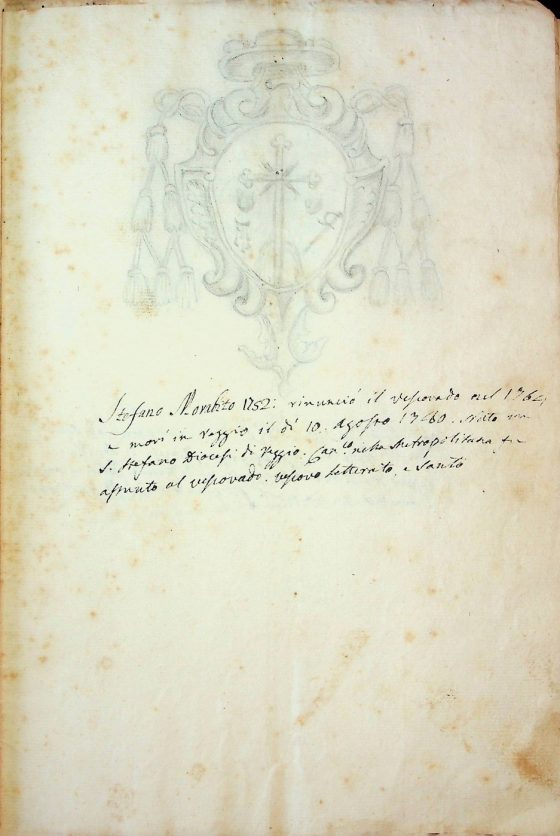 Stefano Morabito 1752: rinunciò il vescovado nel 1764;
e morì in reggio il dì 10. Agosto 1780. Nato in
S. Stefano Diocesi di reggio. Can.co nella Metropolitana +
assunto al vescovado. vescovo letterato, e santo